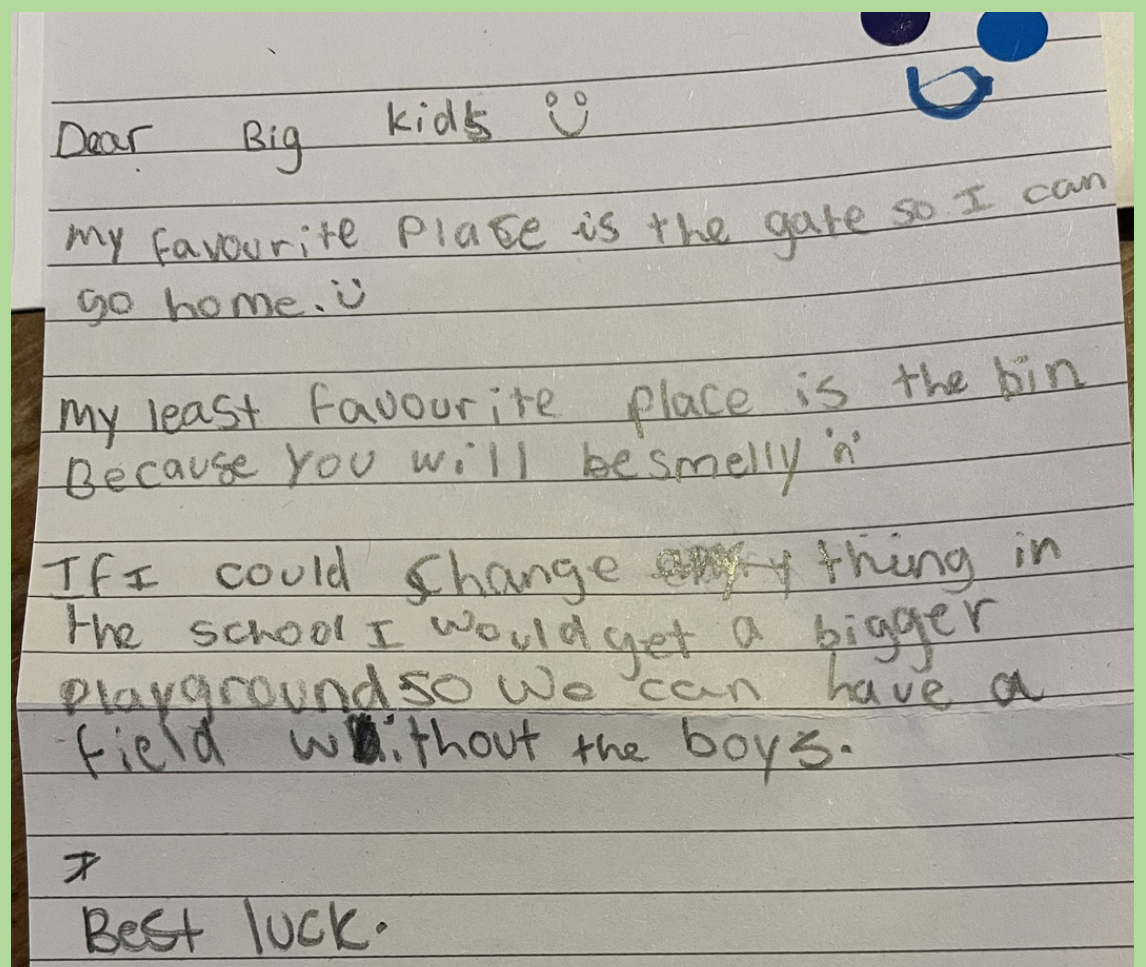 Dear Big kids
my favourite Place is the gate so I can
go home.
my least favourite place is the bin
Because you will be smelly
If I could change any thing in
the school I would get a bigger
playground so we can have a
field without the boys.
Best luck.